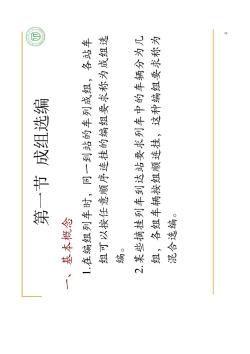 第一节 成组选编
一、基本概念
1.在编组列车时，同一到站的车列成组，各站车
组可以按任意顺序连挂的编组要求称为成组选
编。
2.某些摘挂列车到达站要求列车中的车辆分为几
组，各组车辆按组顺连挂，这种编组要求称为
混合选编。